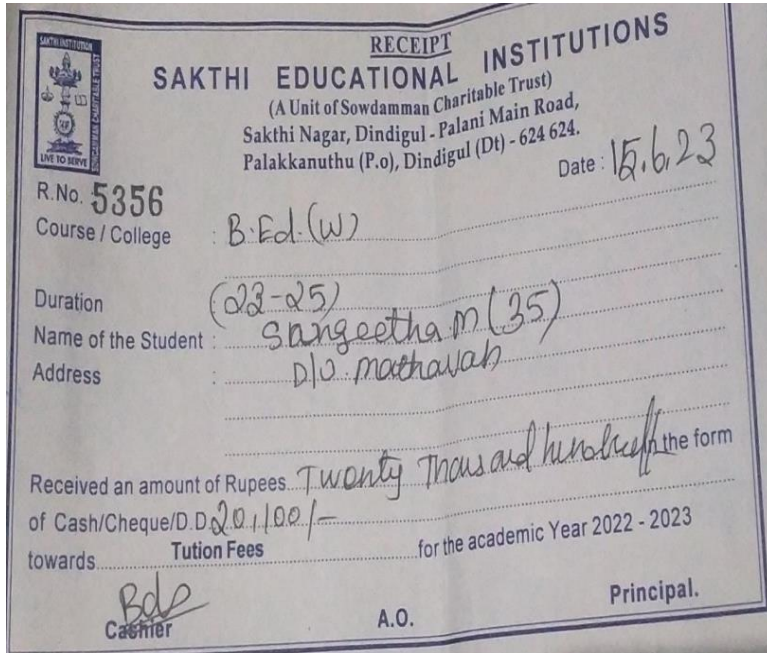 RECEIPT
SAKTHI INSTITUTION
SOWDAMMAN CHARITABLE TRUST
LIVE TO SERVE
SAKTHI EDUCATIONAL INSTITUTIONS
(A Unit of Sowdamman Charitable Trust)
Sakthi Nagar, Dindigul - Palani Main Road,
Palakkanuthu (P.o), Dindigul (Dt) - 624 624.
Date : 15.6.23
R.No. 5356
Course / College : B.Ed.(W)
Duration (23-25)
Name of the Student : Sangeetha M (35)
Address : D/O. Mathavan
Received an amount of Rupees Twenty Thousand hundred the form
of Cash/Cheque/D.D 20,100/-
towards Tution Fees for the academic Year 2022 - 2023
Cashier A.O. Principal.